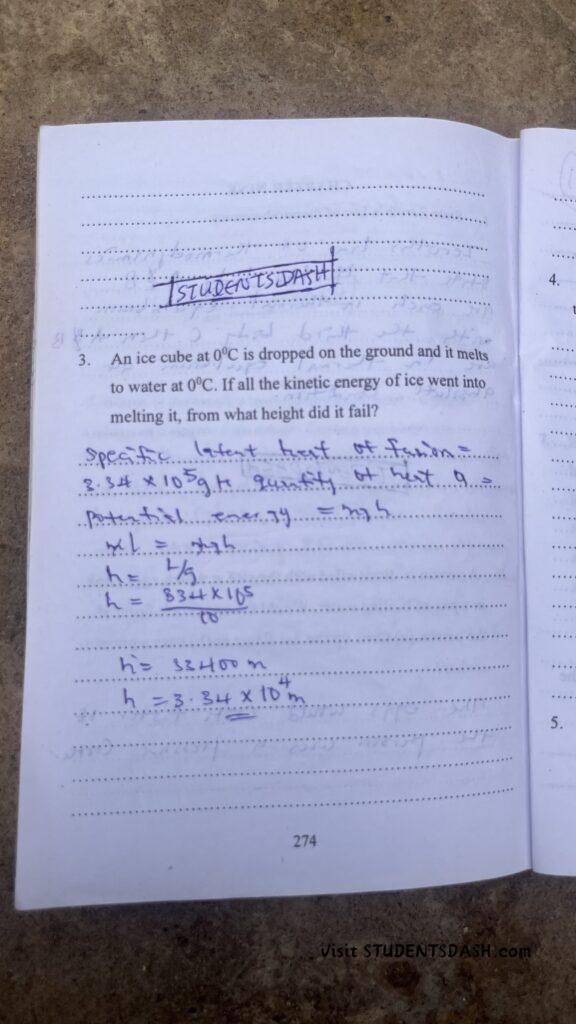 STUDENTSDASH
3. An ice cube at 0⁰C is dropped on the ground and it melts
to water at 0⁰C. If all the kinetic energy of ice went into
melting it, from what height did it fail?
Specific latent heat of fusion =
3.34 × 10⁵ quantity of heat q =
potential energy = mgh
ml = mgh
h = L/g
h = 3.34 × 10⁵
10
h = 33400 m
h = 3.34 × 10⁴ m
274
4.
t
5.
Visit STUDENTSDASH.com